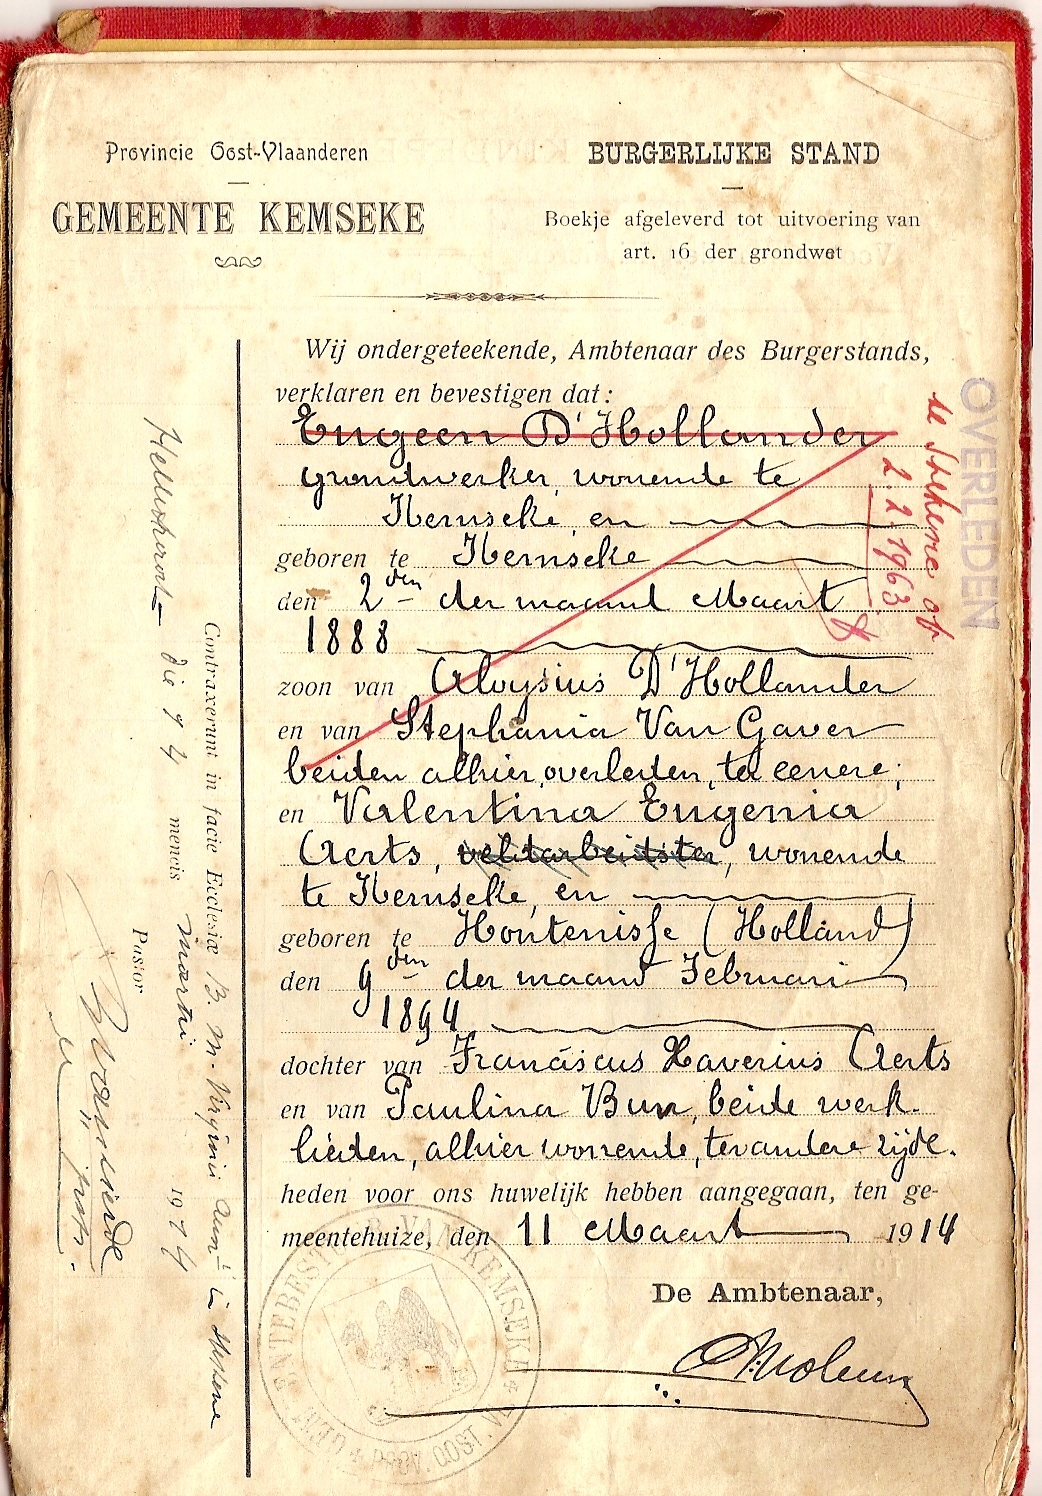 Provincie Oost-Vlaanderen
GEMEENTE KEMSEKE
BURGERLIJKE STAND
Boekje afgeleverd tot uitvoering van
art. 16 der grondwet
Wij ondergeteekende, Ambtenaar des Burgerstands,
verklaren en bevestigen dat:
Eugeen D'Hollander
grondwerker, wonende te
Kemseke, en
geboren te Kemseke
den 2den der maand Maart
1888
zoon van Aloysius D'Hollander
en van Stephania Van Gaver
beiden alhier overleden, ter eenere;
en Valentina Eugenia
Aerts, veldarbeidster, wonende
te Kemseke, en
geboren te Hontenisse (Holland)
den 9den der maand Februari
1894
dochter van Franciscus Xaverius Aerts
en van Paulina Bun, beide werk-
lieden, alhier wonende, ter andere zijde.
heden voor ons huwelijk hebben aangegaan, ten ge-
meentehuize, den 11 Maart 1914
De Ambtenaar,
OVERLEDEN
te Stekene op
2.2.1963
Contraxerunt in facie Ecclesiæ B. M. Virginis in Stekene
die 14 mencis martii 1914
Pastor
GEMEENTEBESTUUR VAN KEMSEKE
PROV. OOST. VL.